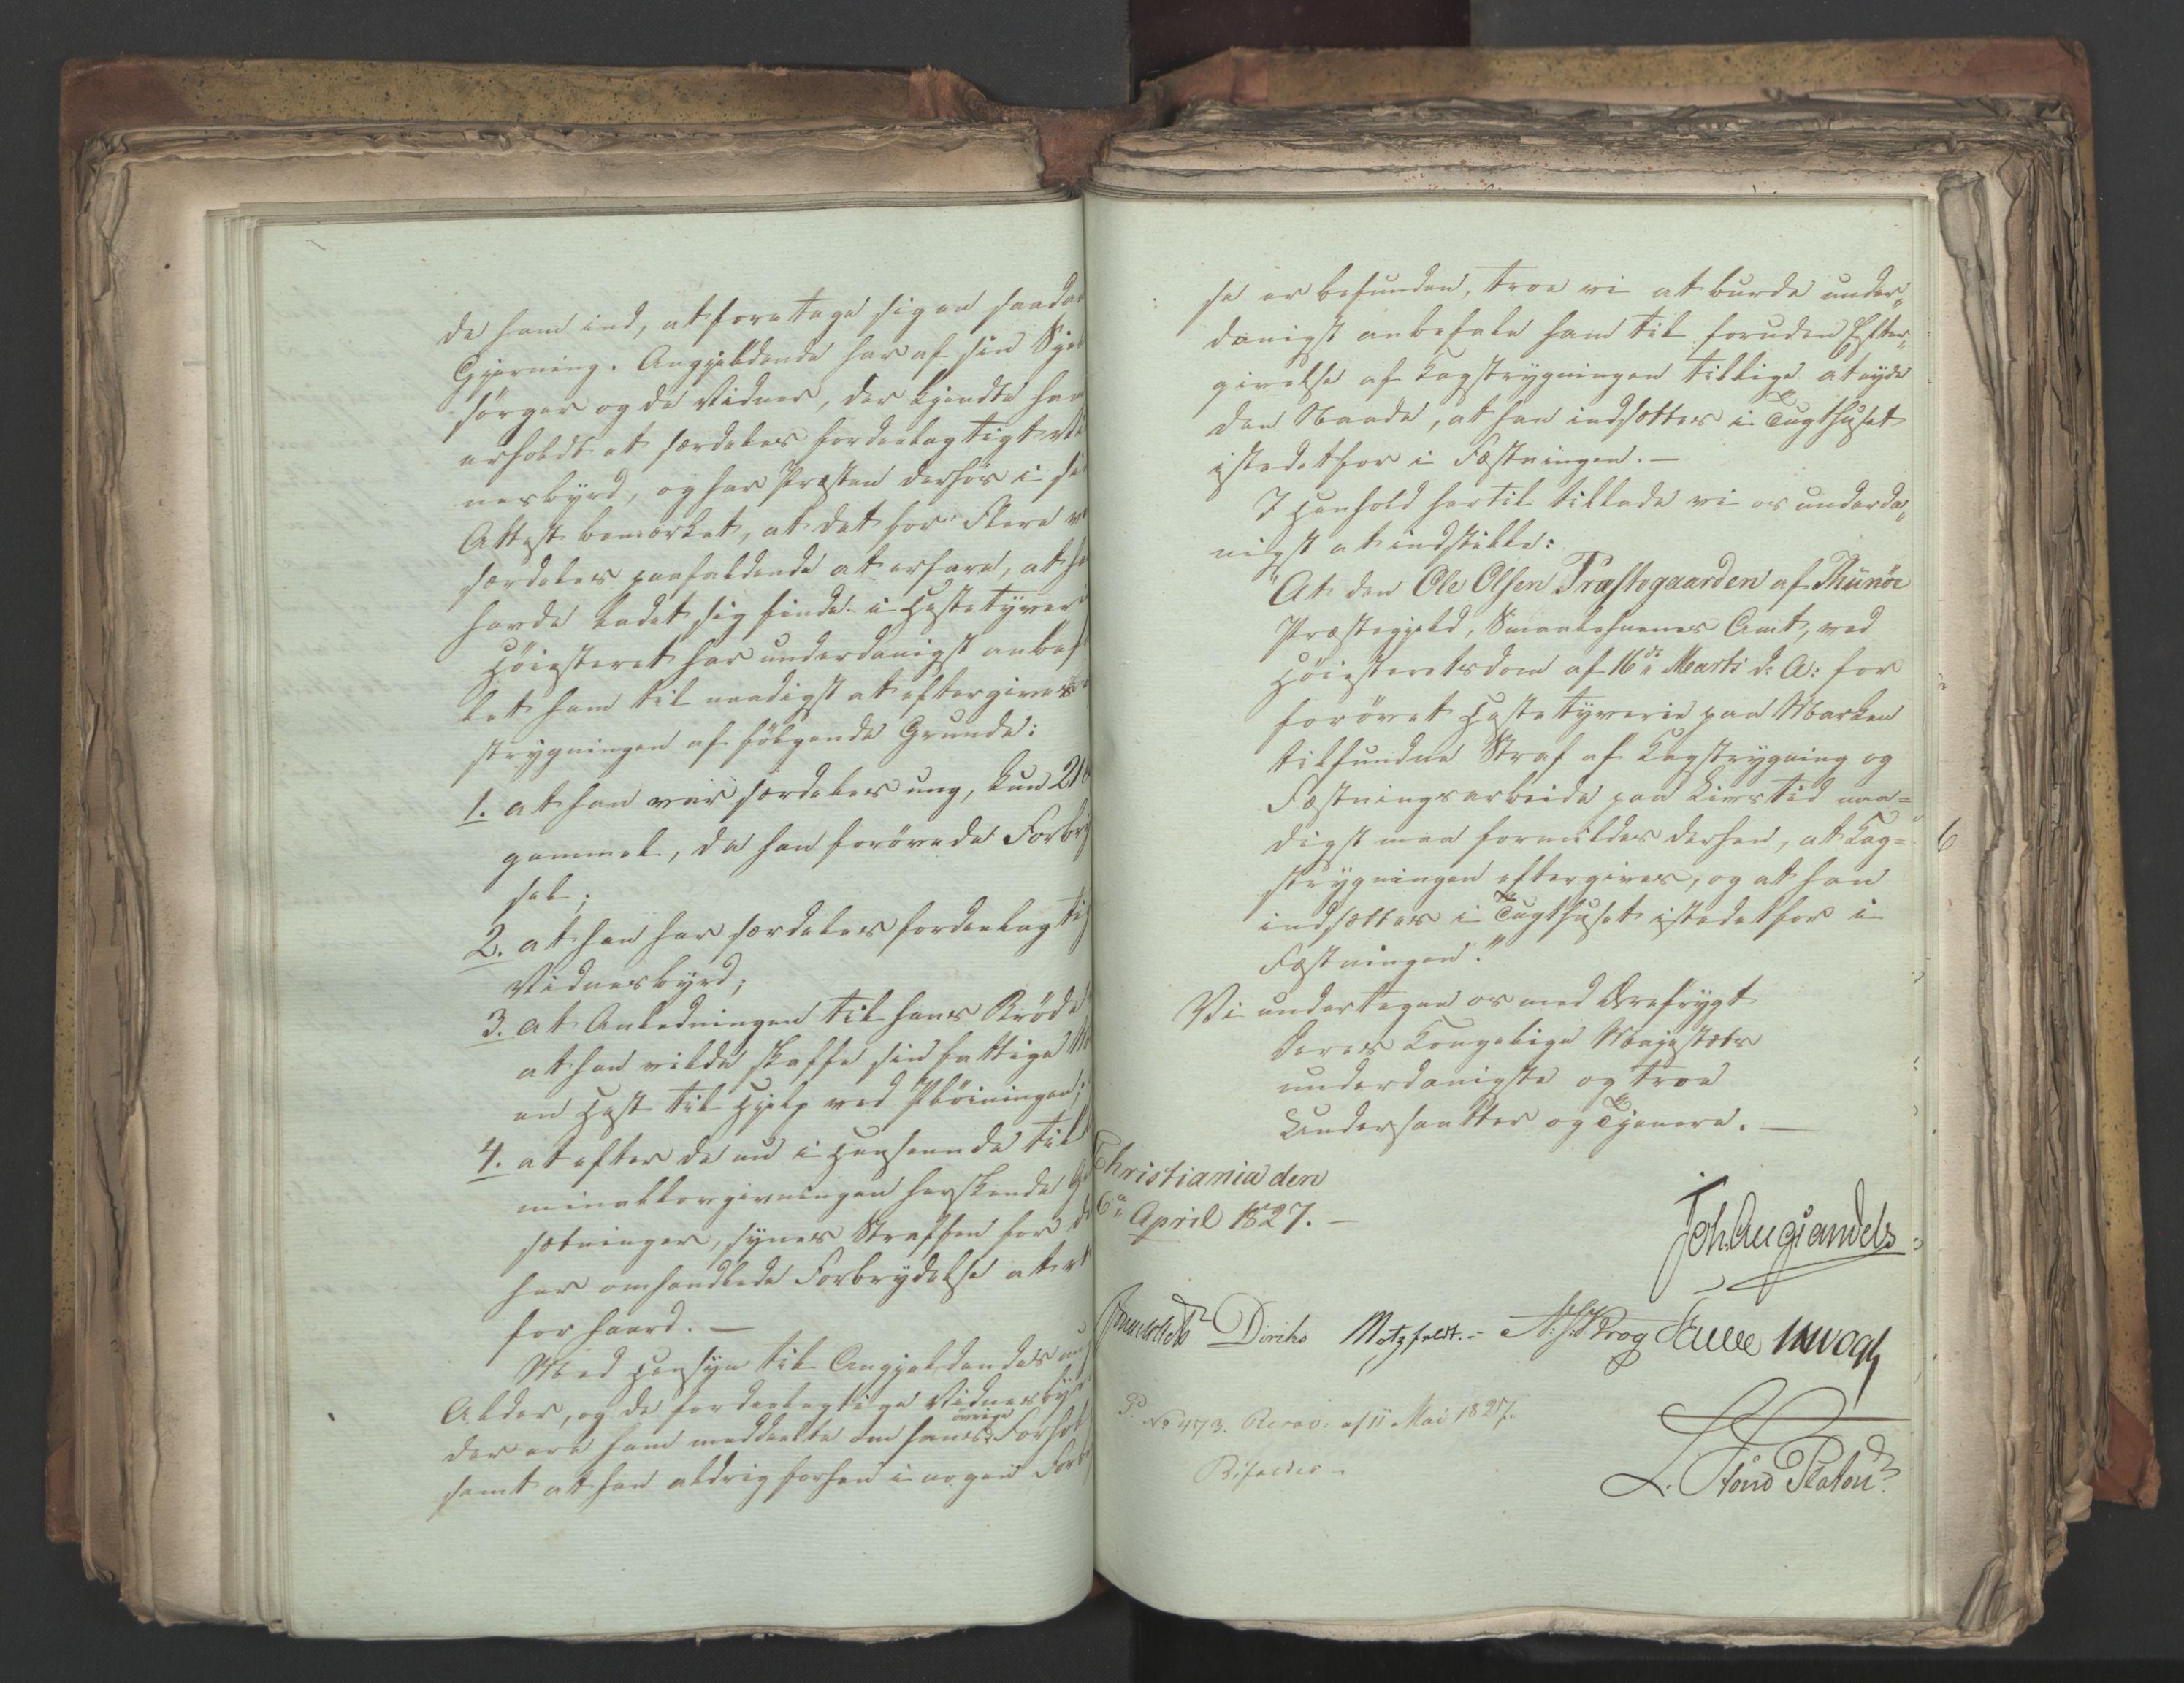 de ham ind, at foretage sig en saadan
Gjerning. Angjeldende har af sin Sjele
sörger og de Vidner, der kjendte ham
erholdt et særdeles fordeelagtigt Vid
nesbyrd, og har Præsten derfor i sin
Attest bemærket, at det for Flere var
særdeles paafaldende at erfare, at han
havde ladet sig finde i Hestetyveri
Höiesteret har underdanigst anbefa
let ham til naadigst at eftergives
strygningen af fölgende Grunde:
1. at han var særdeles ung, kun 21
gammel, da han forövede Forbry
sel;
2. at han har særdeles fordeelagtig
Vidnesbyrd;
3. at Anledningen til hans Bröde
at han vilde skaffe sin fattige
en Hest til Hjelp ved Plöiningen;
4. at efter de nu i Henseende til
minallovgivningen herskende
sætninger, synes Straffen for
her omhandlede Forbrydelse at
for haard. —
Med Hensyn til Angjeldendes
Alder, og de fordeelagtige Vidnesby
der ere ham meddeelte om hans övrige Forhol
samt at han aldrig forhen i nogen Forbry
se er befunden, troe vi at burde under„
danigst anbefale ham til foruden Efter„
givelse af Kagstrygningen tillige at nyde
den Naade, at han indsættes i Tugthuset
istedetfor i Fæstningen. —
I Henhold hertil tillade vi os underda„
nigst at indstille:
"At den Ole Olsen Præstegaarden af Thünöe
Præstegjeld, Smaalehnenes Amt, ved
Höiesteretsdom af 16de Marts d: A: for
forövet Hestetyverie paa Marken
tilfundne Straf af Kagstrygning og
Fæstningsarbeide paa Livstid naa=
digst maa formildes derhen, at Kag=
strygningen eftergives, og at han
indsættes i Tugthuset istedetfor i
Fæstningen."
Vi undertegne os med Ærefrygt
Deres Kongelige Majestæts
underdanigste og troe
Undersaatter og Tjenere. —
Christiania den
6te April 1827. —
Joh. Aug. Sandels
Sommerhielm Diriks Motzfeldt. - N: J: Krog Fasting JHVogt
L. Stoud Platou
No 473. Resol. af 11 Mai 1827.
Bifaldes -